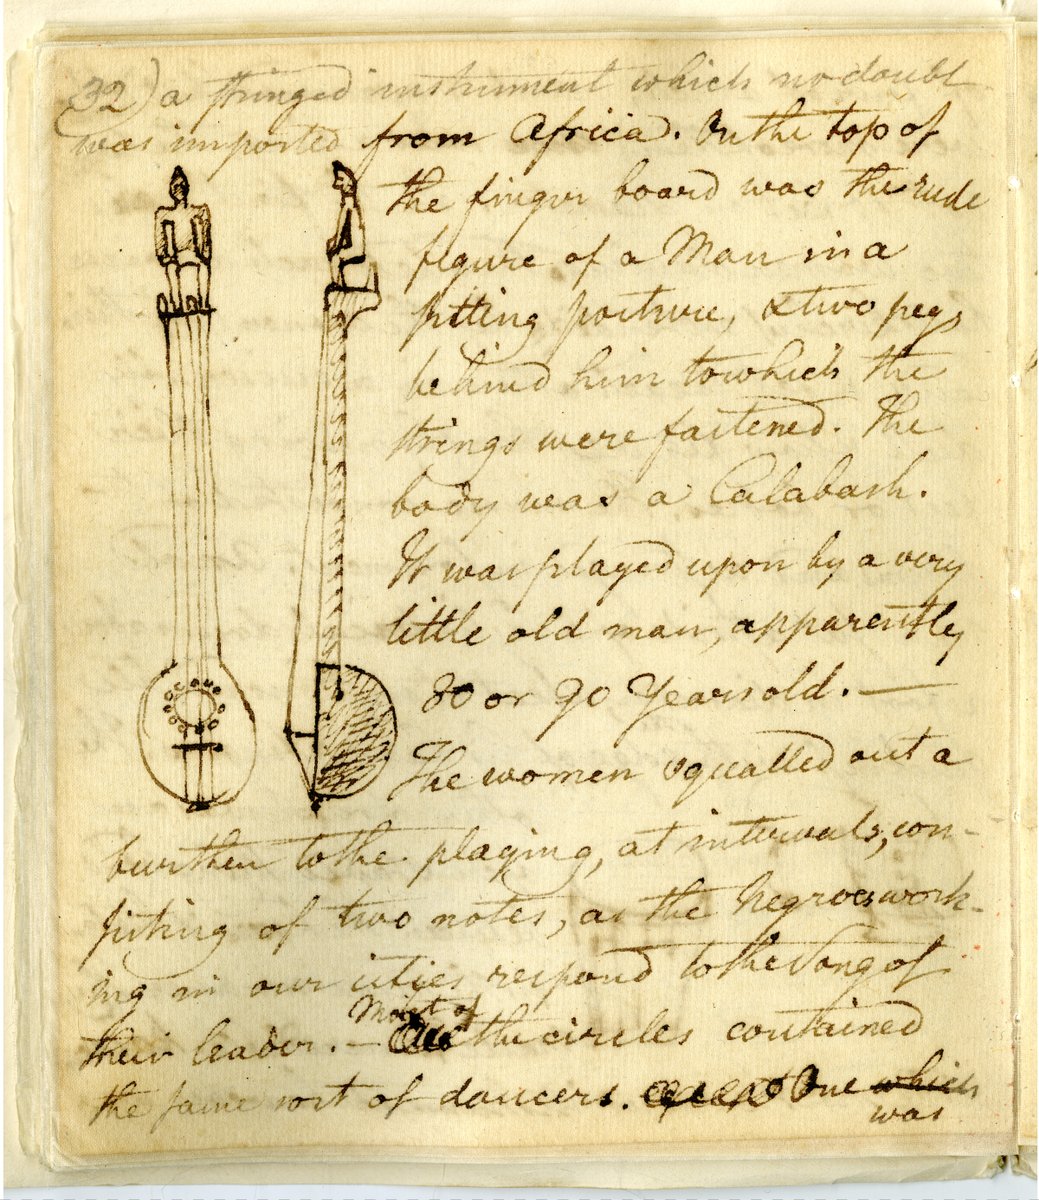 32) a stringed instrument which no doubt
was imported from Africa. On the top of
the finger board was the rude
figure of a Man in a
sitting posture, & two pegs
behind him to which the
strings were fastened. The
body was a Calabash.
It was played upon by a very
little old man, apparently
80 or 90 Years old. —
The women squalled out a
burthen to the playing, at intervals, con-
sisting of two notes, as the Negroes work-
ing in our cities respond to the Song of
their leader. — Most of the circles contained
the same sort of dancers. One which
was